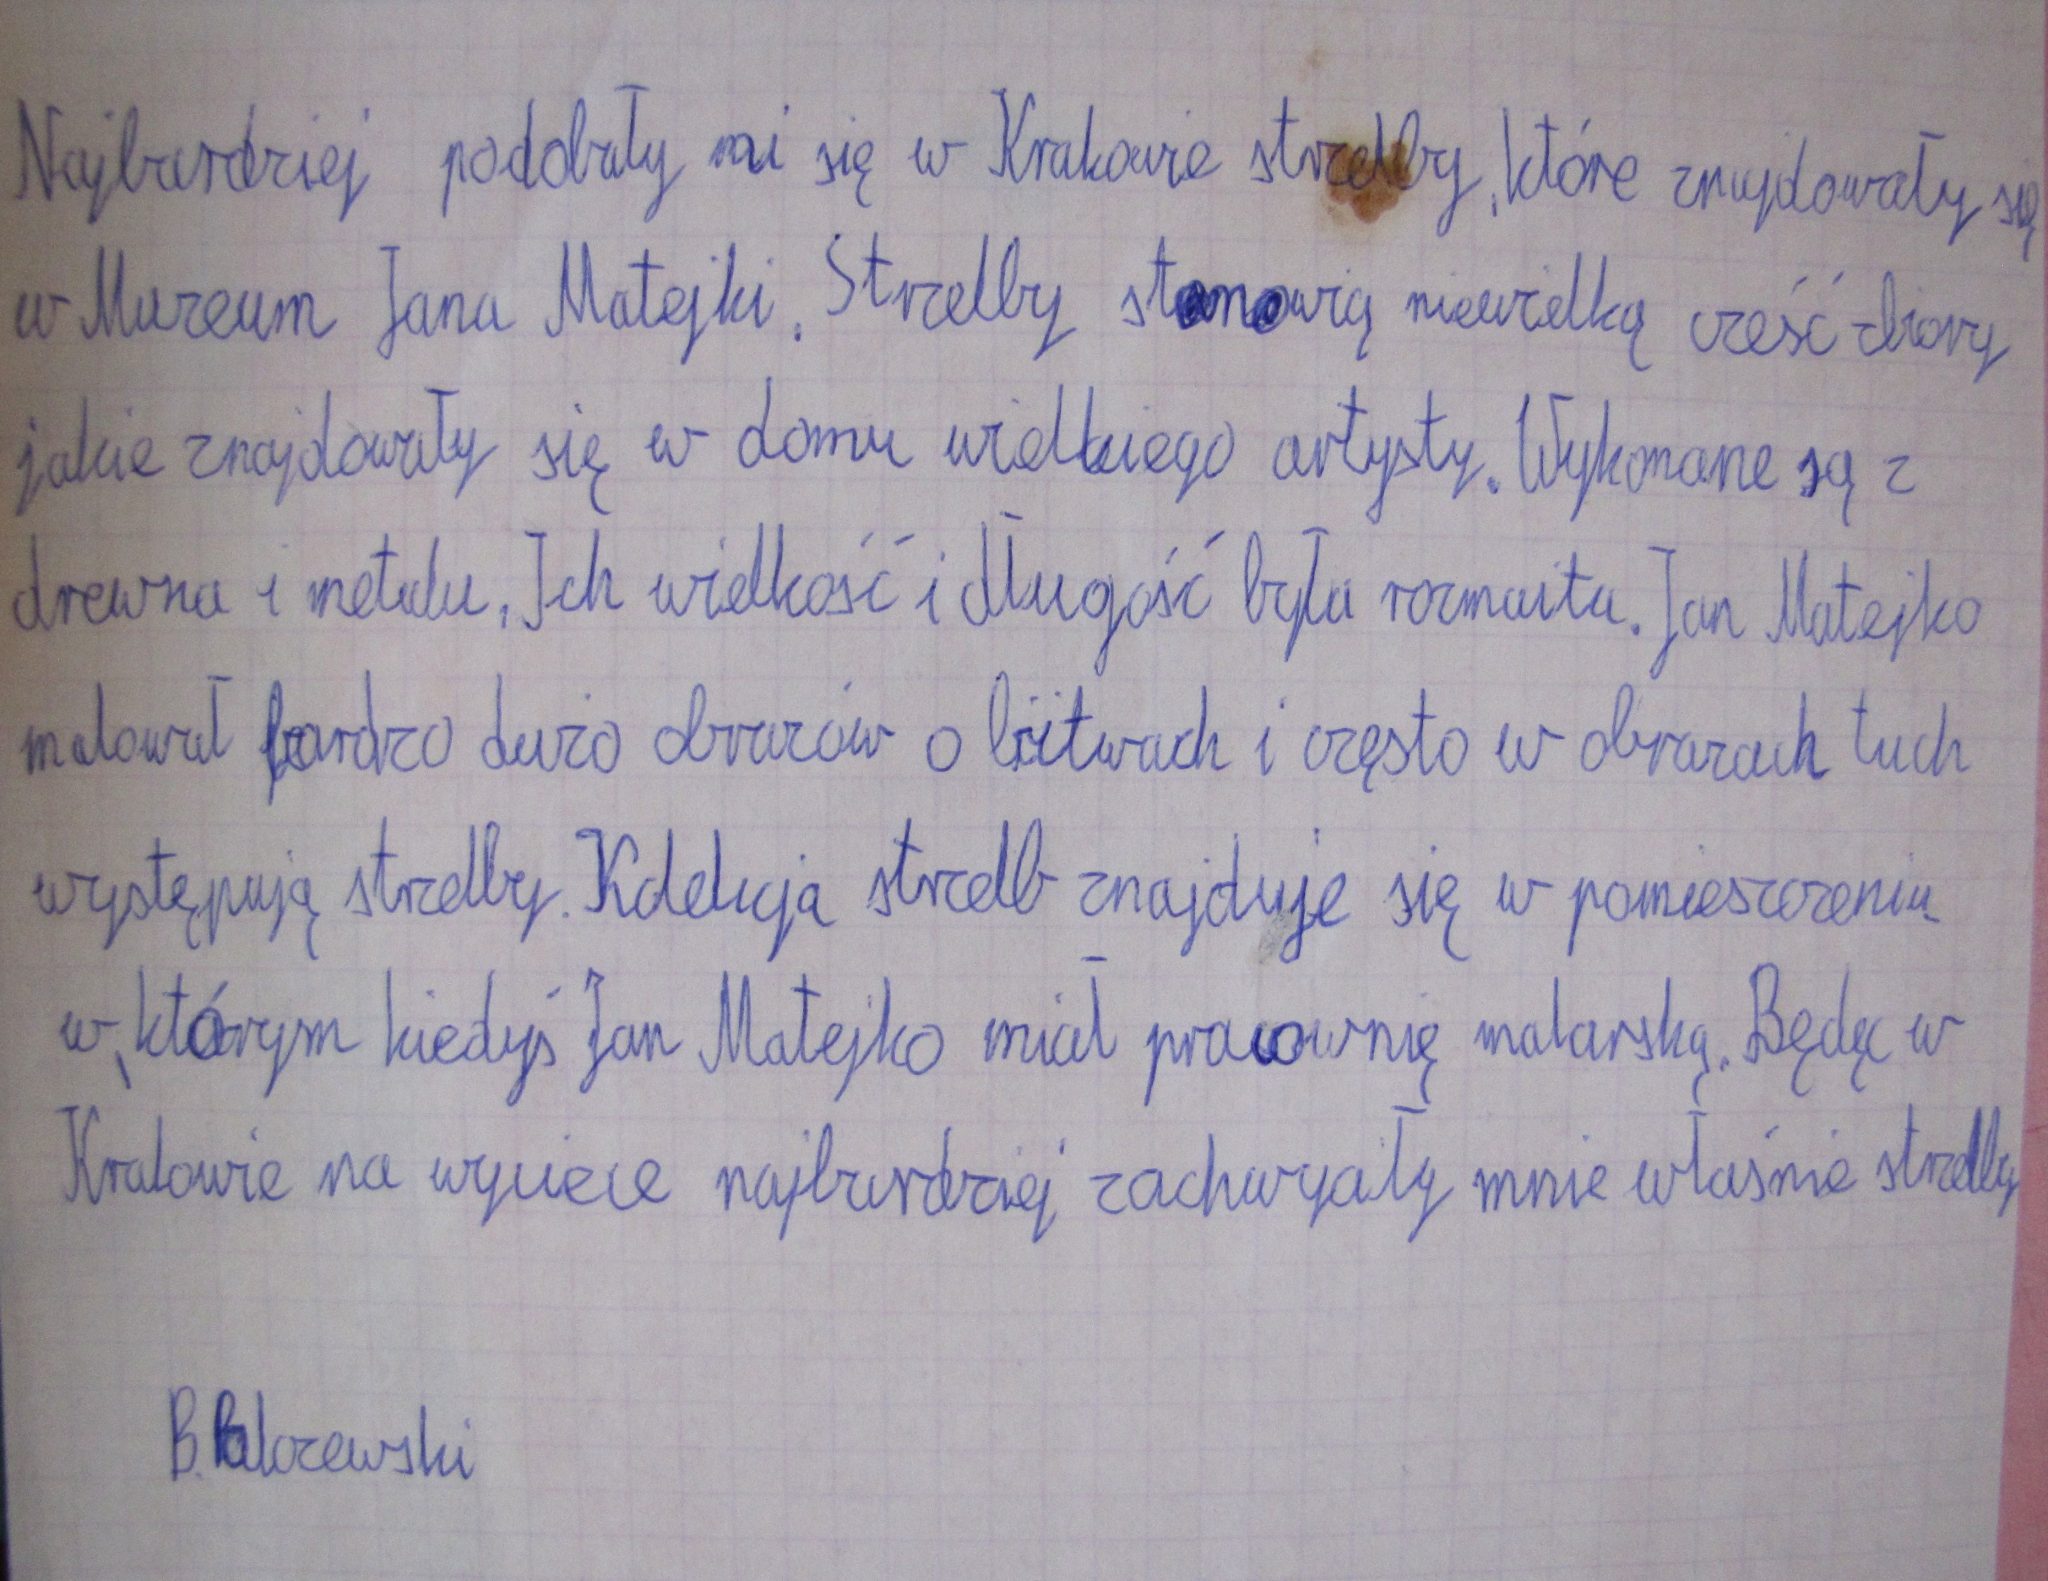 Najbardziej podobały mi się w Krakowie strzelby, które znajdowały się
w Muzeum Jana Matejki. Strzelby stanowią niewielką cześć zbiory
jakie znajdowały się w domu wielkiego artysty. Wykonane są z
drewna i metalu. Ich wielkość i długość była rozmaita. Jan Matejko
malował bardzo dużo obrazów o bitwach i często w obrazach tych
występują strzelby. Kolekcja strzelb znajduje się w pomieszczeniu
w, którym kiedyś Jan Matejko miał pracownię malarską. Będąc w
Krakowie na wyciece najbardziej zachwyciły mnie właśnie strzelby
B.